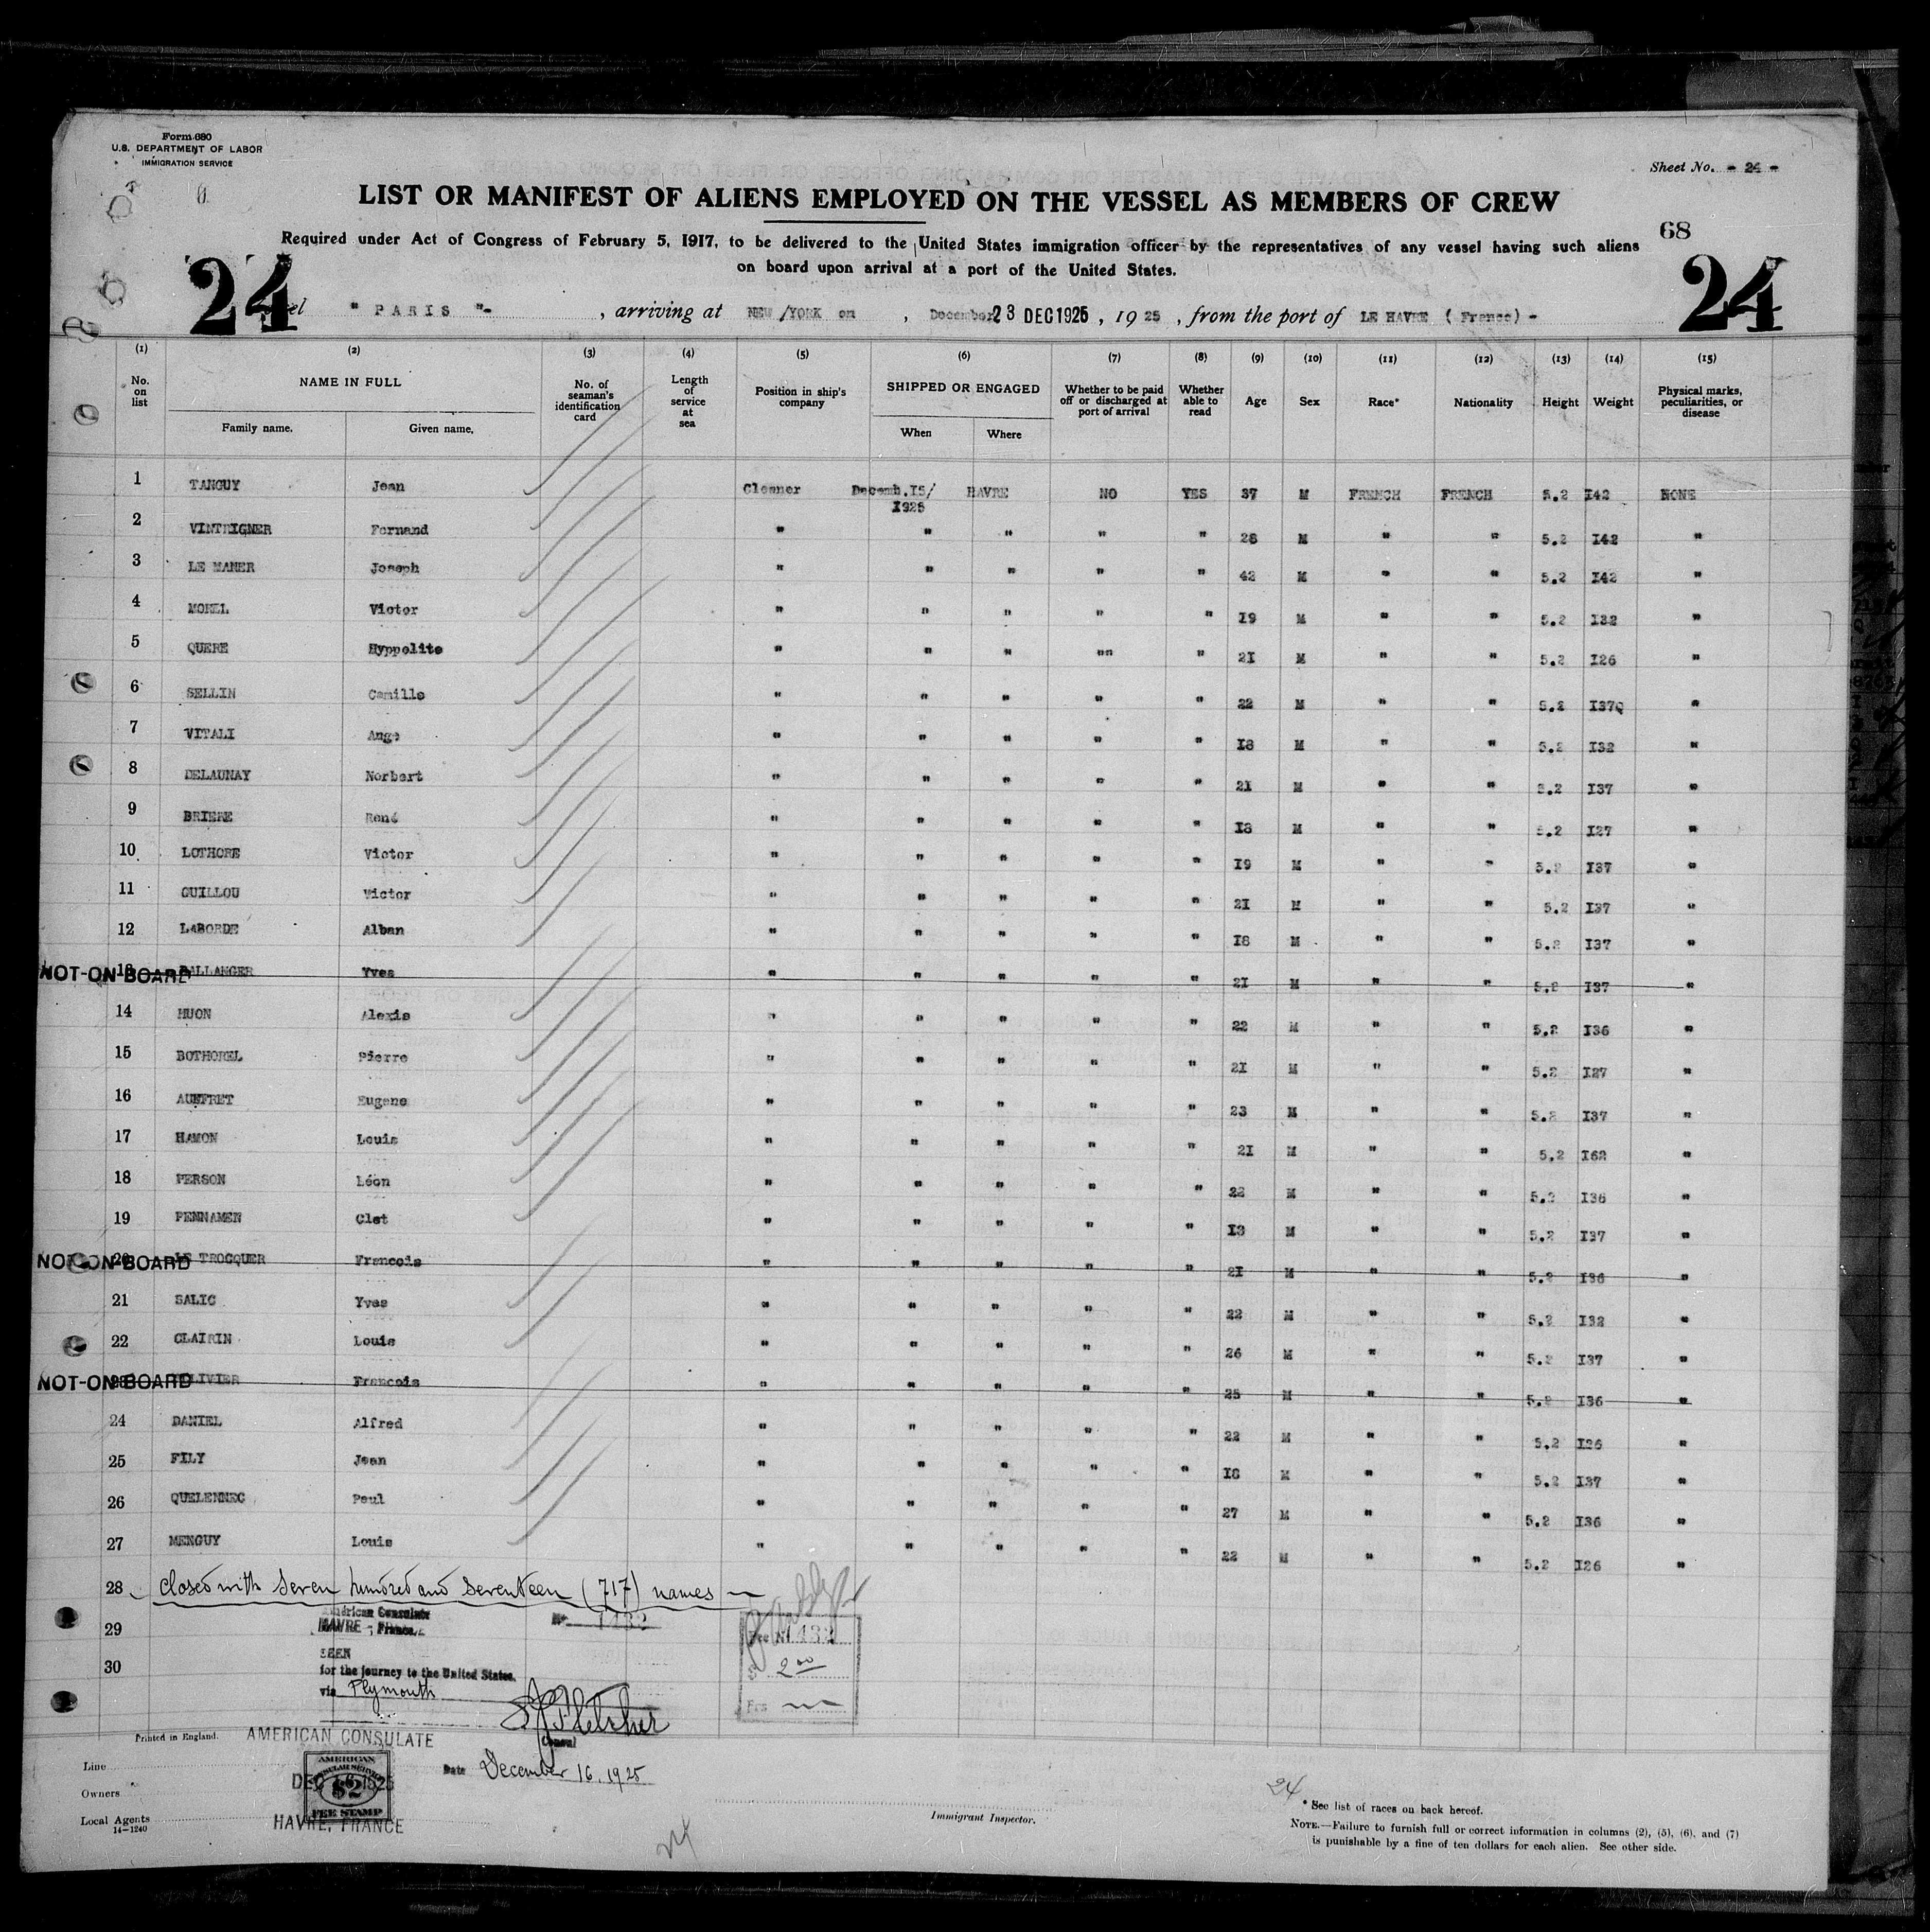 Form 680
U.S. DEPARTMENT OF LABOR
IMMIGRATION SERVICE
Sheet No. - 24 -
LIST OR MANIFEST OF ALIENS EMPLOYED ON THE VESSEL AS MEMBERS OF CREW
68
Required under Act of Congress of February 5, 1917, to be delivered to the United States immigration officer by the representatives of any vessel having such aliens
on board upon arrival at a port of the United States.
24 24
" PARIS "- , arriving at NEW/YORK on , December 23 DEC 1925 , 1925 , from the port of LE HAVRE ( France) -
(1) (2) (3) (4) (5) (6) (7) (8) (9) (10) (11) (12) (13) (14) (15)
No. on list NAME IN FULL No. of seaman's identification card Length of service at sea Position in ship's company SHIPPED OR ENGAGED Whether to be paid off or discharged at port of arrival Whether able to read Age Sex Race* Nationality Height Weight Physical marks, peculiarities, or disease
Family name. Given name. When Where
1 TANGUY Jean Cleaner Decemb.I5/ I925 HAVRE NO YES 37 M FRENCH FRENCH 5.2 I42 NONE
2 VINTRIGNER Fernand " " " " " 28 M " " 5.2 I42 "
3 LE MANER Joseph " " " " " 42 M " " 5.2 I42 "
4 MOREL Victor " " " " " I9 M " " 5.2 I32 "
5 QUERE Hyppolite " " " "" " 2I M " " 5.2 I26 "
6 SELLIN Camille " " " " " 22 M " " 5.2 I37Q "
7 VITALI Ange " " " " " I8 M " " 5.2 I32 "
8 DELAUNAY Norbert " " " " " 2I M " " 5.2 I37 "
9 BRIERE René " " " " " I8 M " " 5.2 I27 "
10 LOTHORE Victor " " " " " I9 M " " 5.2 I37 "
11 GUILLOU Victor " " " " " 2I M " " 5.2 I37 "
12 LABORDE Alban " " " " " I8 M " " 5.2 I37 "
NOT-ON-BOARD 13 BALLANGER Yves " " " " " 2I M " " 5.2 I37 "
14 HUON Alexis " " " " " 22 M " " 5.2 I36 "
15 BOTHOREL Pierre " " " " " 2I M " " 5.2 I27 "
16 AUFFRET Eugene " " " " " 23 M " " 5.2 I37 "
17 HAMON Louis " " " " " 2I M " " 5.2 I62 "
18 PERSON Léon " " " " " 22 M " " 5.2 I36 "
19 PENNAMEN Clet " " " " " I8 M " " 5.2 I37 "
NOT-ON-BOARD 20 LE TROCQUER Francois " " " " " 2I M " " 5.2 I36 "
21 SALIC Yves " " " " " 22 M " " 5.2 I32 "
22 CLAIRIN Louis " " " " " 26 M " " 5.2 I37 "
NOT-ON-BOARD 23 Francois " " " " " 25 M " " 5.2 I36 "
24 DANIEL Alfred " " " " " 22 M " " 5.2 I26 "
25 FILY Jean " " " " " I8 M " " 5.2 I37 "
26 QUELENNEC Paul " " " " " 27 M " " 5.2 I36 "
27 MENGUY Louis " " " " " 22 M " " 5.2 I26 "
28 closed with seven hundred and seventeen (717) names —
American Consulate
29 HAVRE - France. No 1432
Fee No 1432
SEEN
30 for the journey to the United States. $ 2 00
via Plymouth
Frs —
Fletcher
Consul
Printed in England.
AMERICAN CONSULATE
Line
Date December 16, 1925
Owners
DEC 16 1925
AMERICAN CONSULAR SERVICE $2 FEE STAMP
HAVRE, FRANCE
Local Agents
14-1240
Immigrant Inspector.
24
24
* See list of races on back hereof.
NOTE.—Failure to furnish full or correct information in columns (2), (5), (6), and (7)
is punishable by a fine of ten dollars for each alien. See other side.